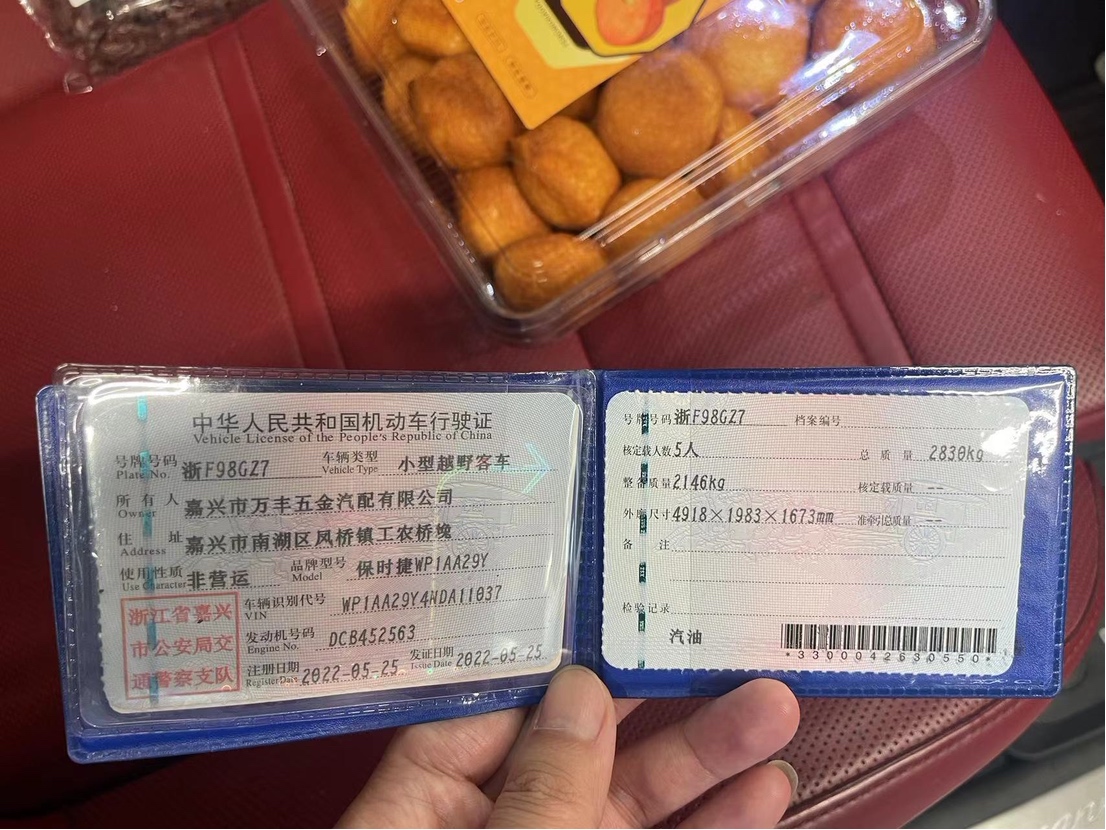 中华人民共和国机动车行驶证
Vehicle License of the People's Republic of China
号牌号码 Plate No. 浙F98GZ7 车辆类型 Vehicle Type 小型越野客车
所有人 Owner 嘉兴市万丰五金汽配有限公司
住址 Address 嘉兴市南湖区凤桥镇工农桥堍
使用性质 Use Character 非营运 品牌型号 Model 保时捷WP1AA29Y
浙江省嘉兴
市公安局交
通警察支队
车辆识别代号 VIN WP1AA29Y4HDA11037
发动机号码 Engine No. DCB452563
注册日期 Register Date 2022-05-25 发证日期 Issue Date 2022-05-25
号牌号码 浙F98GZ7 档案编号
核定载人数 5人 总质量 2830kg
整备质量 2146kg 核定载质量 --
外廓尺寸 4918×1983×1673mm 准牵引总质量 --
备注
检验记录
汽油
*3300042630550*